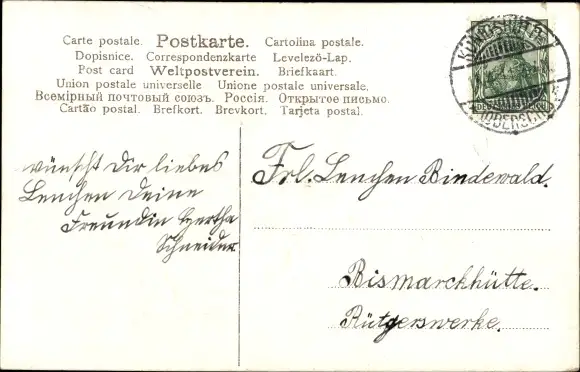 Carte postale. Postkarte. Cartolina postale.
Dopisnice. Correspondenzkarte Levelező-Lap.
Post card Weltpostverein. Briefkaart.
Union postale universelle Unione postale universale.
Всемірный почтовый союзъ. Россія. Открытое письмо.
Cartão postal. Brefkort. Brevkort. Tarjeta postal.
wünscht Dir liebes
Lenchen Deine
Freundin Hertha
Schneider.
Frl. Lenchen Bindewald.
Bismarckhütte.
Rütgerswerke.